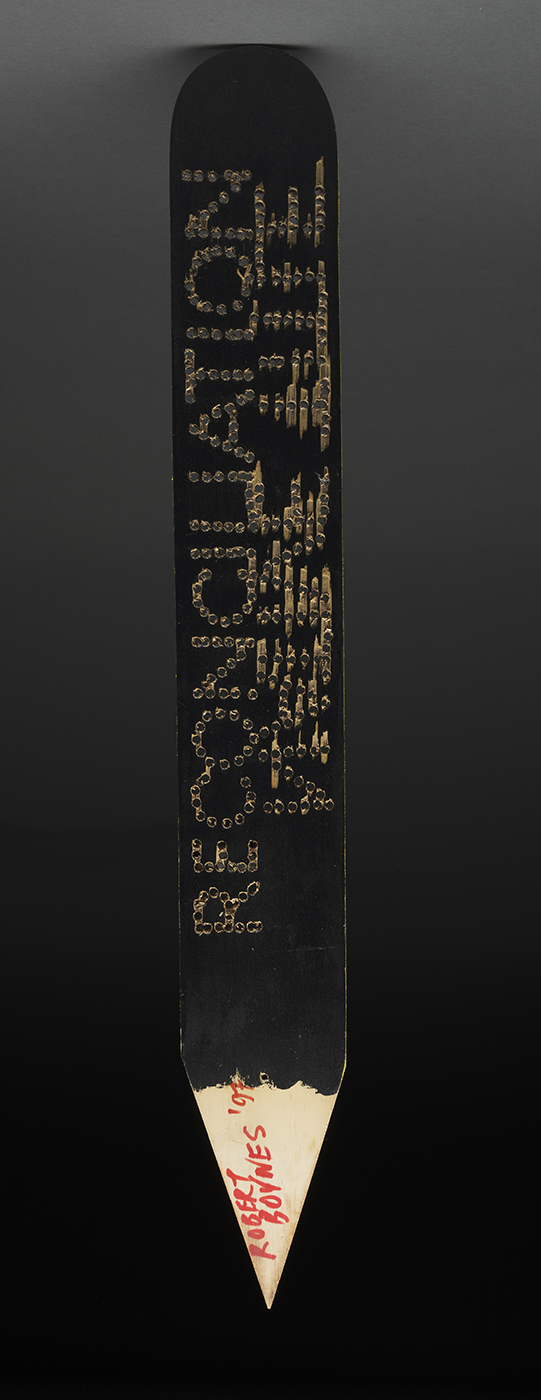 RECONCILIATION
ROBERT
BOYNES '97